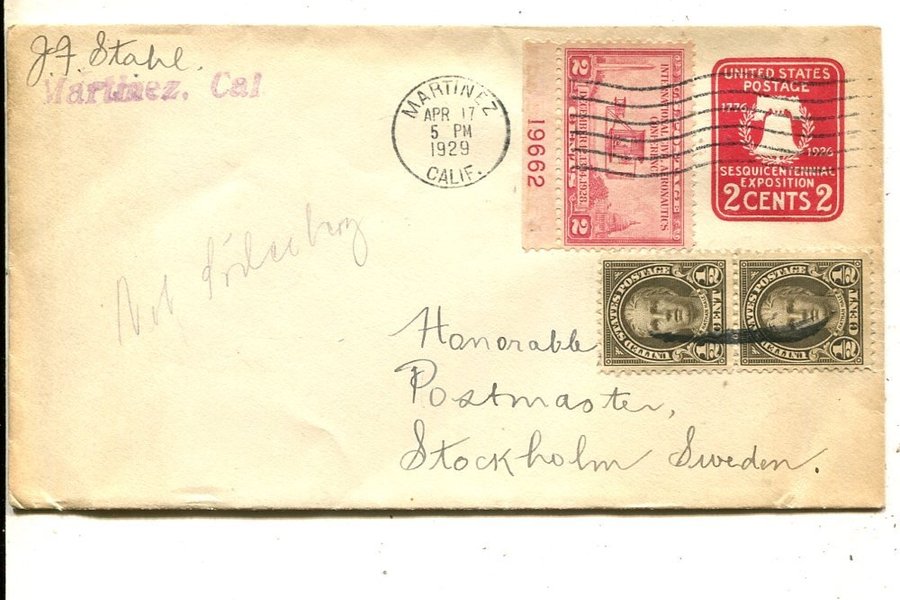 J. F. Stahl.
Martinez, Cal
MARTINEZ
APR 17
5 PM
1929
CALIF.
19662
2 2
INTERNATIONAL CIVIL AERONAUTICS
CONFERENCE
DECEMBER 12·13·14·1928
UNITED STATES
POSTAGE
1776
1926
SESQUICENTENNIAL
EXPOSITION
2 CENTS 2
UNITED STATES POSTAGE
½ ½
HALE
UNITED STATES POSTAGE
½ ½
HALE
Honorable
Postmaster,
Stockholm Sweden.